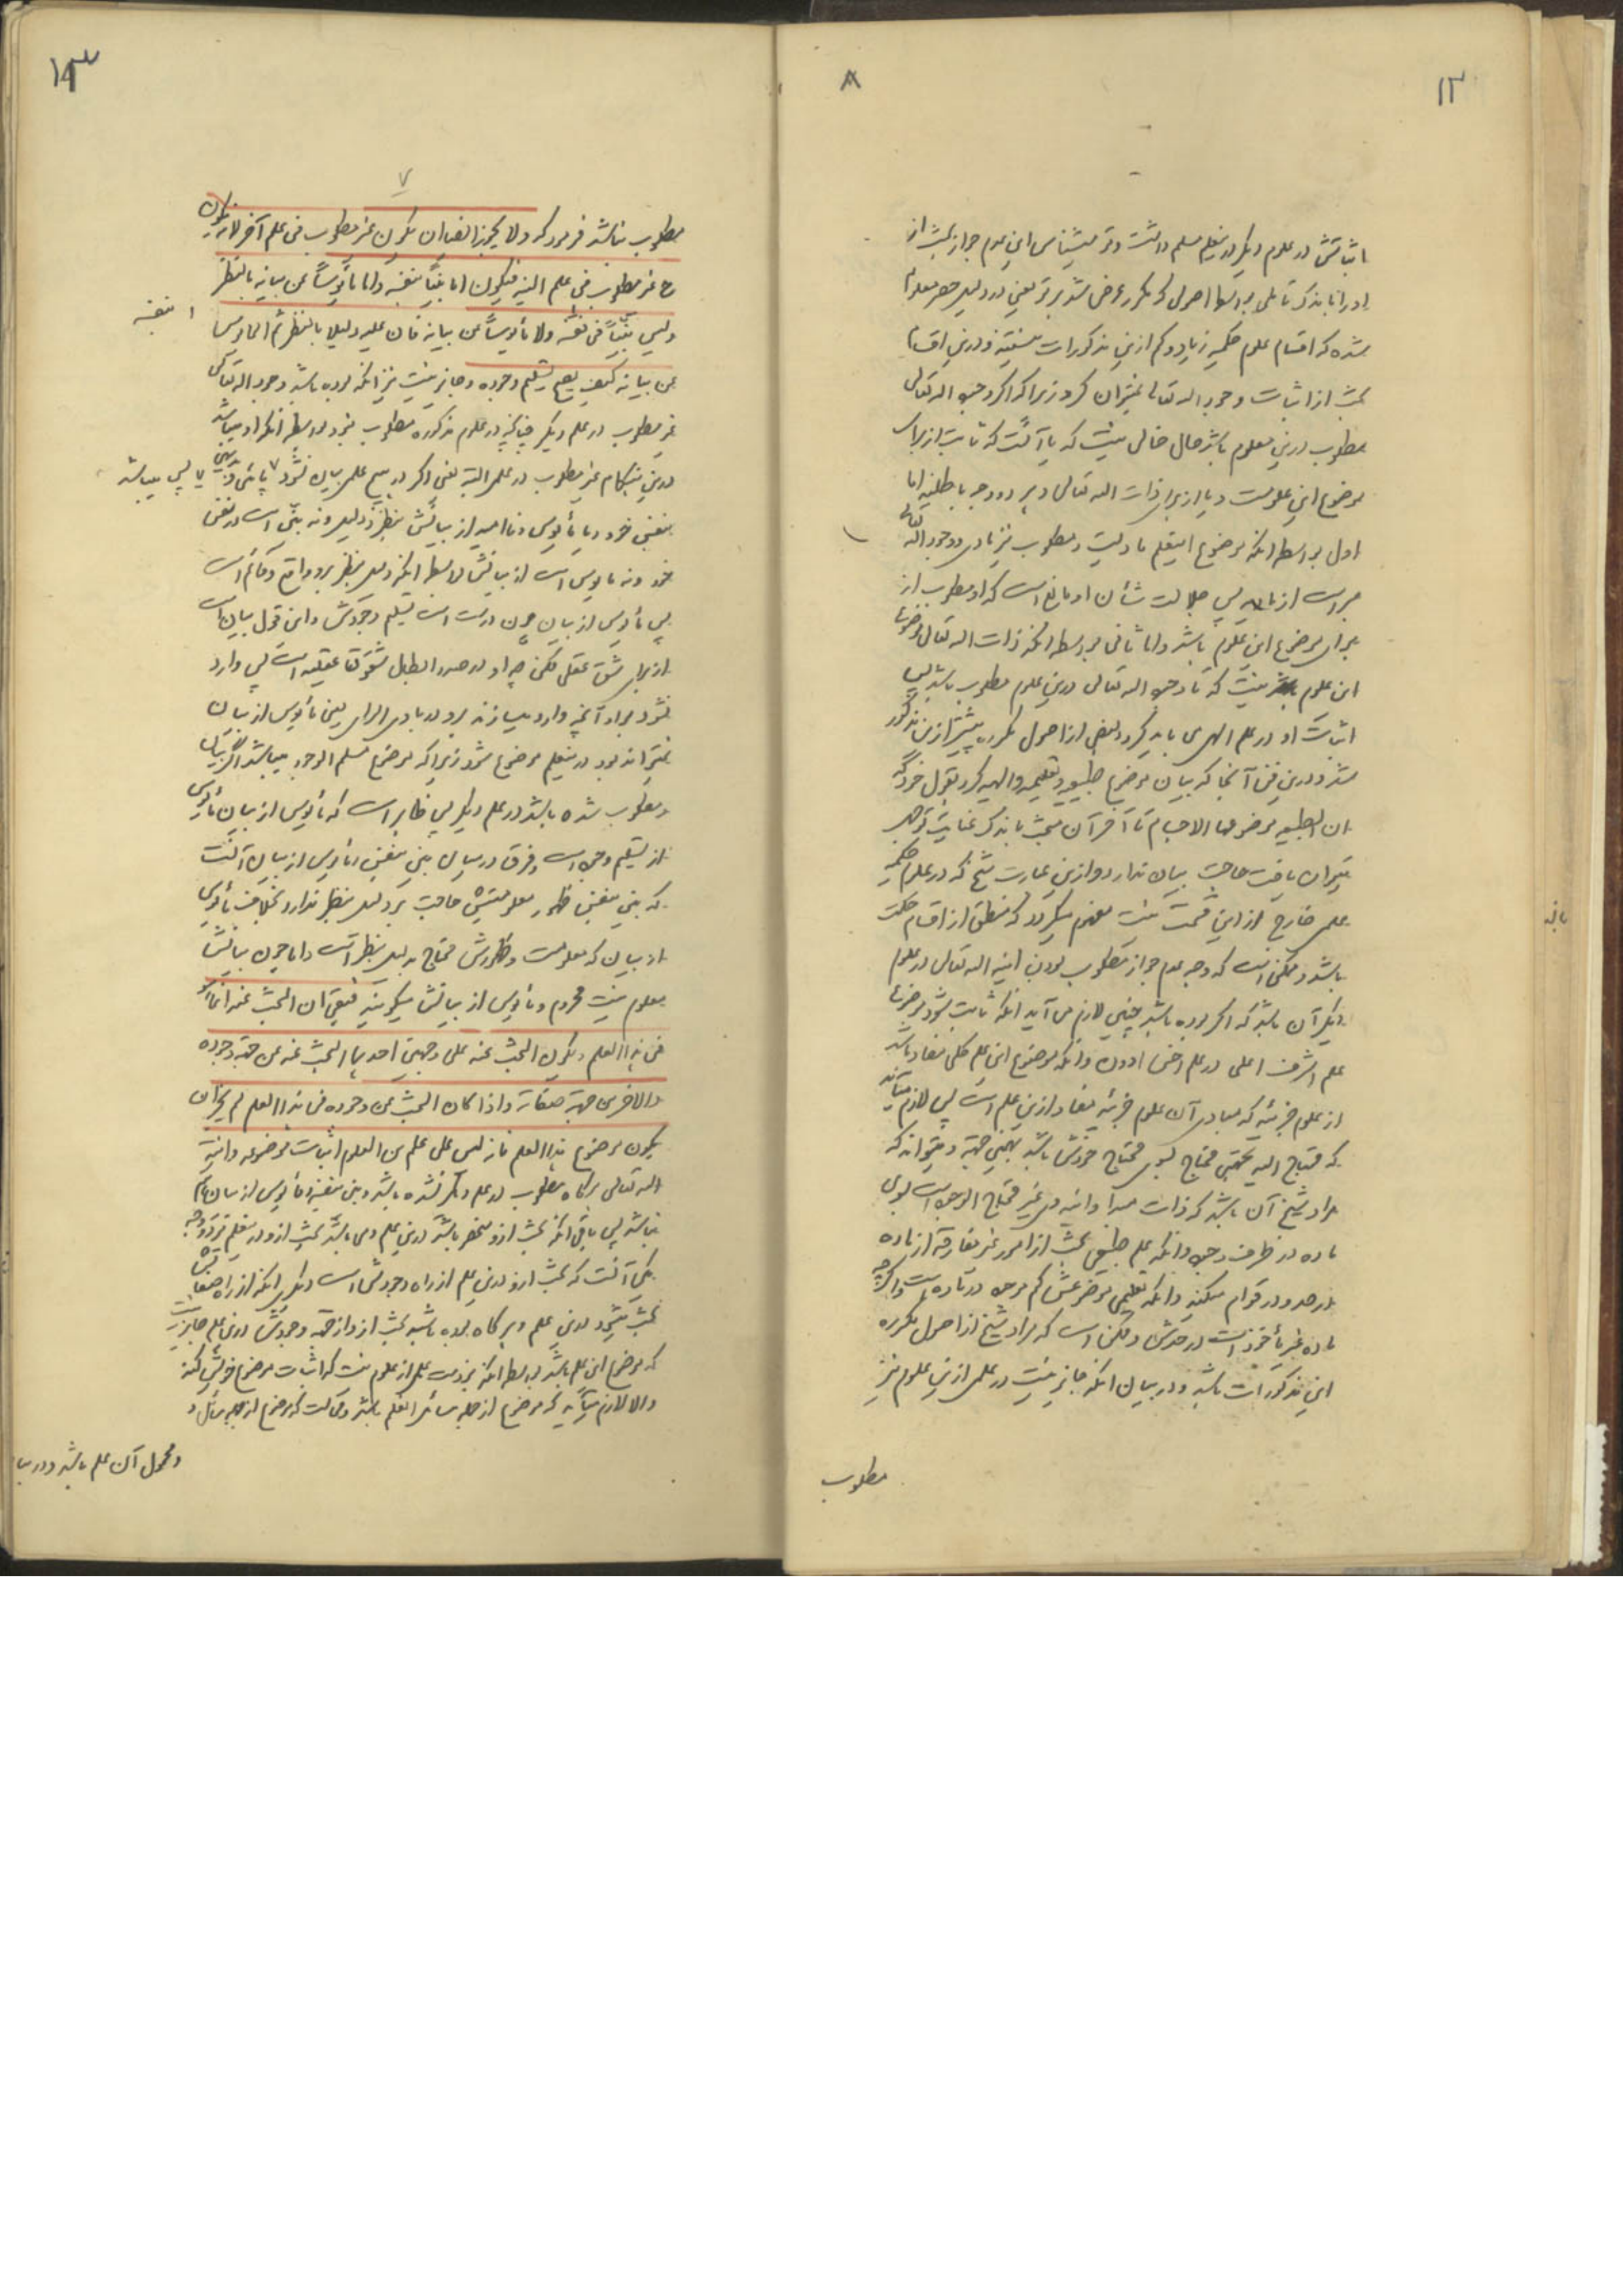 ۱۲
۸
اثباتش در علوم دیگر در ینعلم مسلم داشت و تو میشناسی این عدم جواز بحث از
او را باندک تأملی بواسطه اصولی که مکرر عرض شد بر تو یعنی در دلیل حصر معلوم
شده که اقسام علوم حکمیه زیاد و کم ازین مذکورات نیستند و درین اقسام
بحث از اثبات وجود اله تعالی نمیتوان کرد زیرا که اگر وجود اله تعالی
مطلوب درین علوم باشد حال خالی نیست که یا آنست که ثابت از برای
موضوع این علومست و یا از برای ذات اله تعالی و هر دو وجه باطلند اما
اول بواسطه آنکه موضوع اینعلم مادیست و مطلوب نیز مادی و وجود اله تعالی
مبراست از ماده پس جلالت شأن او مانع است که او مطلوب از
برای موضوع این علوم باشد و اما ثانی بواسطه آنکه ذات اله تعالی موضوع
این علوم نیست که تا وجود اله تعالی درین علوم مطلوب باشد پس
اثبات او در علم الهی می باید کرد و بعضی از اصول مکرره پیشتر ازین مذکور
شد و درین فن آنجا که بیان موضوع طبیعیه و تعلیمیه و الهیه کرد بقول خود که
ان الطبیعیه موضوعها الاجسام تا آخر آن مبحث باندک عنایت توجهی
میتوان یافت حاجت بیان ندارد و ازین عبارت شیخ که در علوم حکمیه
علمی خارج از این قسمت نیست مفهوم میگردد که منطق از اقسام حکمت
باشد و ممکن است که وجه عدم جواز مطلوب بودن انیه اله تعالی در علوم
دیگر آن باشد که اگر بوده باشد چنین لازم می آید آنکه ثابت شود موضوع
علم اشرف اعلی در علم اخس ادون و آنکه موضوع این علم کلی مفاد باشد
از علوم جزئیه که مبادی آن علوم جزئیه مفاد ازین علم است پس لازم میآید
که محتاج الیه بجهتی محتاج بسوی محتاج خودش باشد بهمین جهة و میتواند که
مراد شیخ آن باشد که ذات مبدأ و انیه وی غیر محتاج الوجود است بسوی
ماده در ظرف وجود و آنکه علم طبیعی بحث از امور غیر مفارقه از ماده
در حد و در قوام میکند و آنکه تعلیمی موضوعش کم موجود در ماده است و اگرچه
ماده غیر مأخوذ است در حدش و ممکن است که مراد شیخ از اصول مکرره
این مذکورات باشد و در بیان آنکه جایز نیست در علمی ازین علوم نیز
مطلوب
۱۳
۷
مطلوب نباشد فرمود که ولا یجوز ایضا ان یکون غیر مطلوب فی علم آخر لانه یکون
ح غیر مطلوب فی علم البته فیکون اما بیناً بنفسه واما مأیوساً عن بیانه بالنظر
ولیس بیناً فی نفسه ولا مأیوساً عن بیانه فان علیه دلیلا بالنظر ثم المأیوس
بنفسه
عن بیانه کیف یصح تسلیم وجوده و جایز نیست نیز آنکه بوده باشد وجود اله تعالی
غیر مطلوب در علم دیگر چنانچه در علوم مذکوره مطلوب نبود بواسطه آنکه او میباشد
درین هنگام غیر مطلوب در علمی البته یعنی اگر در هیچ علمی بیان نشود
پس میباشد
بنفس خود و یا مأیوس و ناامید از بیانش بنظر و دلیل و نه بین است در نفس
خود و نه مأیوس است از بیانش بواسطه آنکه دلیل بنظر برو واقع و قائم است
پس مأیوس از بیان چون درست است تسلیم وجودش و این قول بیان است
از برای شق عقلی ممکن چه او در صدد ابطال شقوق عقلیه است پس وارد
نشود بر او آنچه وارد میسازند برو در بادی الرای یعنی مأیوس از بیان
نمیتواند بود در ینعلم موضوع شود زیرا که موضوع مسلم الوجود میباشد
و مطلوب شده باشد در علم دیگر پس ظاهر است که مأیوس از بیان مأیوس
از تسلیم وجود است و فرق در میان بین بنفس و مأیوس از بیان آنست
که بین بنفس ظهور معلومتیش حاجت بدلیل بنظر ندارد بخلاف مأیوس
از بیان که معلومیت و ظهورش محتاج بدلیل بنظر است و اما چون بیانش
معلوم نیست محروم و مأیوس از بیانش میگویند فبقی ان البحث عنه انما هو
فی هذا العلم و یکون البحث عنه علی وجهین احدهما البحث عنه من جهة وجوده
والاخر من جهة صفاته واذا کان البحث عن وجوده فی هذا العلم لم یجز ان
یکون موضوع هذا العلم فانه لیس علی علم من العلوم اثبات موضوعه و انیه
اله تعالی هرگاه مطلوب در علم دیگر نشده باشد و بین بنفسه و مأیوس از بیان هم
نباشد پس باقی آنکه بحث ازو منحصر باشد درین علم و می باشد بحث ازو در ینعلم بر دو وجه
یکی آنست که بحث ازو درین علم از راه وجودش است و دیگری آنکه از راه صفاتش
بحث میشود درین علم و هرگاه بوده باشد بحث ازو از جهة وجودش درین علم جایز نیست
که موضوع این علم باشد بواسطه آنکه نبودست علمی از علوم نیست که اثبات موضوع خویش کند
والا لازم میآید که موضوع از جمله مسائل آنعلم باشد و محالست که موضوع از جمله مسائل و
و محمول آن علم باشد و در بیا